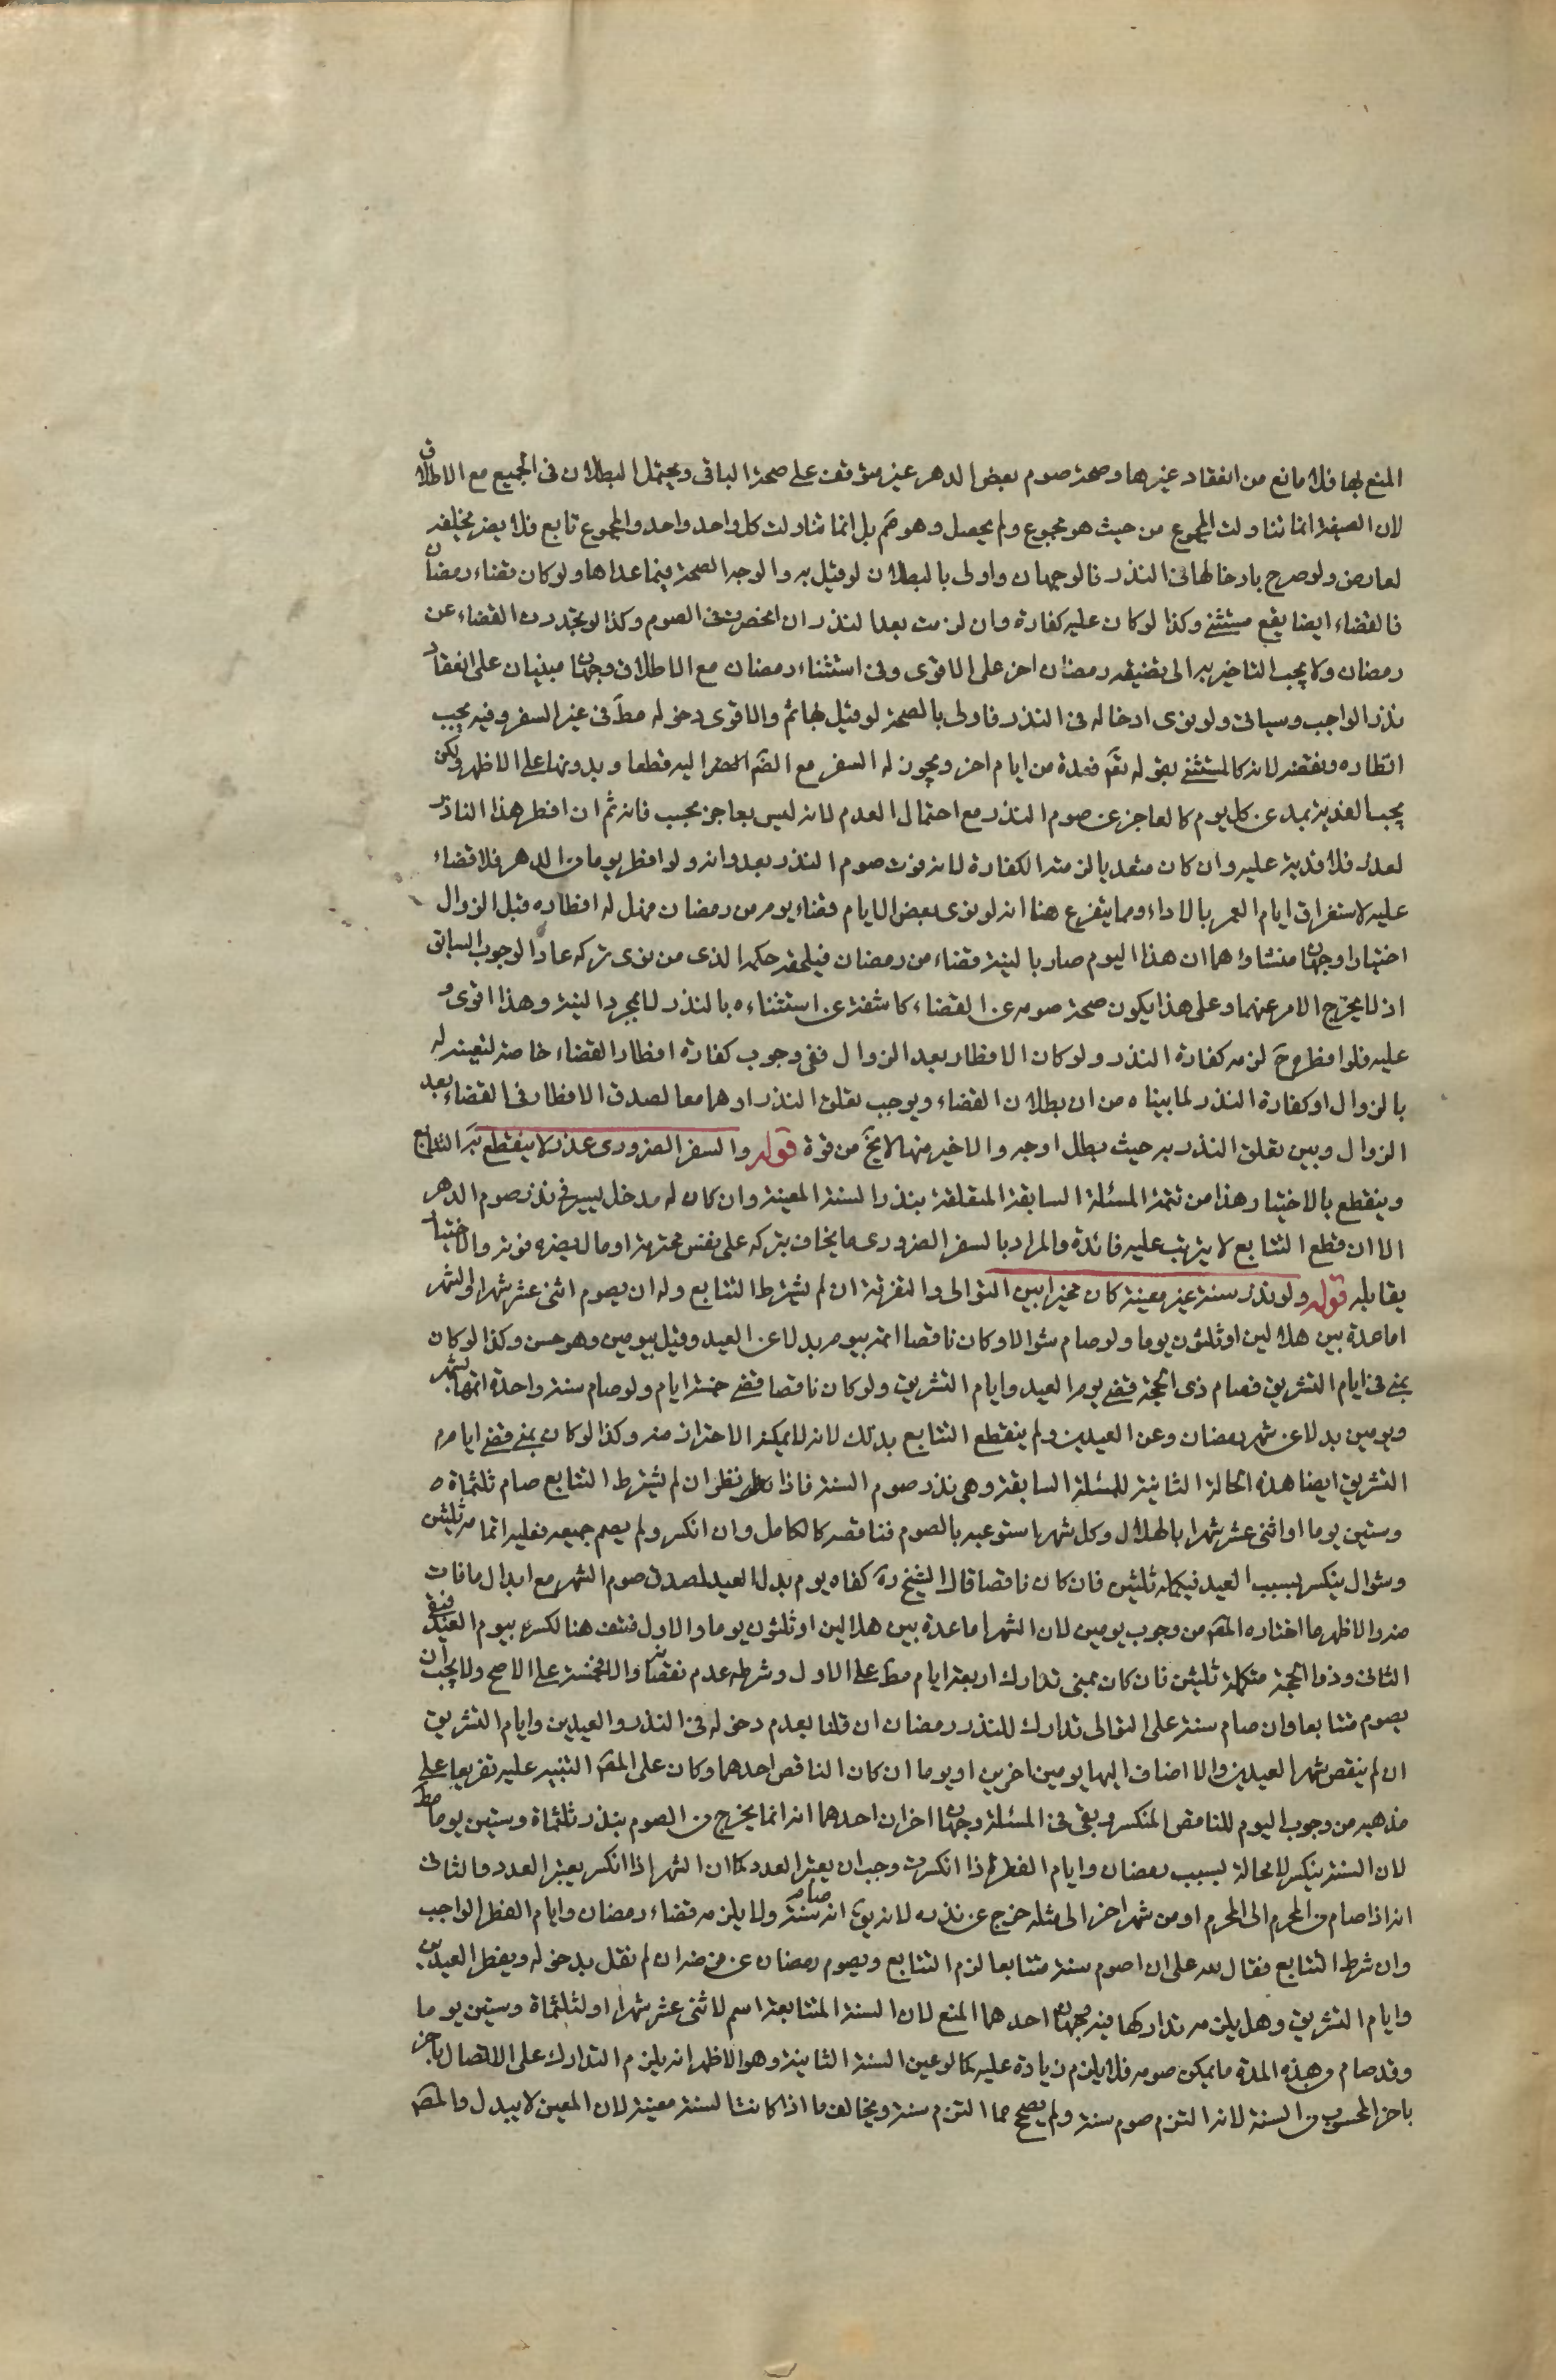 المنع لها فلا مانع من انعقاد غيرها وصحة صوم بعض الدهر غير متوقف على صحة الباقى ويحتمل البطلان فى الجميع مع الاطلاق
لان الصيغة انما تناولت المجموع من حيث هو مجموع ولم يحصل وهو ضم بل انما تناولت كل واحد واحد والمجموع تابع فلا يضر تخلفه
لعارض ولو صرح بادخالها فى النذر فالوجهان واولى بالبطلان لو قيل به والوجه الصحة فيما عداها ولو كان قضاء رمضان
فالقضاء ايضا يقع مستثنى وكذا لو كان عليه كفارة وان لزمت بعد النذر ان انحصرت فى الصوم وكذا لو تجدد القضاء عن
رمضان ولا يجب التاخير به الى تضيقه رمضان اخر على الاقوى وفى استثناء رمضان مع الاطلاق وجهان مبنيان على انعقاد
نذر الواجب وسياتى ولو نوى ادخاله فى النذر فاولى بالصحة لو قيل بها ثم والاقوى دخوله مط فى غير السفر وفيه يجب
افطاره ونقضه لانه كالمستثنى بقوله تع فعدة من ايام اخر ويجوز له السفر مع الضرورة اليه قطعا وبدونها على الاظهر ولكن
يجب الفدية بمد عن كل يوم كالعاجز عن صوم النذر مع احتمال العدم لانه ليس بعاجز محسب فانه ثم ان افطر هذا الناذر
لعذر فلا فدية عليه وان كان متعديا لزمته الكفارة لانه فوت صوم النذر بعدوانه ولو افطر يوما من الدهر فلا قضاء
عليه لاستغراق ايام العمر بالاداء ومما يتفرع هنا انه لو نوى بعض الايام قضاء يوم من رمضان فهل له افطاره قبل الزوال
اختيارا وجهان منشاؤهما ان هذا اليوم صار بالنية قضاء من رمضان فيلحقه حكمه الذى من نوى تركه عاد الوجوب السابق
اذ لا يخرج الامر عنهما وعلى هذا يكون صحة صومه عن القضاء كاشفة عن استثناءه بالنذر لا بمجرد النية وهذا اقوى و
عليه فلو افطر ح لزمه كفارة النذر ولو كان الافطار بعد الزوال ففى وجوب كفارة افطار القضاء خاصة لتعينه له
بالزوال او كفارة النذر لما بيناه من ان بطلان القضاء ويوجب تعلق النذر او هما معا لصدق الافطار فى القضاء بعد
الزوال وبين تعلق النذر به حيث بطل اوجه والاخير منها لا يخ من قوة قوله والسفر الضرورى عذر لا ينقطع به التتابع
وينقطع بالاختيار هذا من تتمة المسئلة السابقة المتعلقة بنذر السنة المعينة وان كان له مدخل يسير فى نذر صوم الدهر
الا ان قطع التتابع لا يترتب عليه فائدة والمراد بالسفر الضرورى ما يخاف بتركه على نفس محترمة او مال يضره فوته والاختيار
يقابله قوله ولو نذر سنة غير معينة كان مخيرا بين التوالى والتفرقة ان لم يشترط التتابع وله ان يصوم اثنى عشر شهرا والشهر
اما عدة بين هلالين او ثلثون يوما ولو صام شوالا وكان ناقصا اتمه بيوم بدلا عن العيد وقيل بيومين وهو حسن وكذا لو كان
بمنى فى ايام التشريق فصام ذى الحجة قضى يوم العيد وايام التشريق ولو كان ناقصا قضى خمسة ايام ولو صام سنة واحدة اتمها بشهر
ويومين بدلا عن شهر رمضان وعن العيدين ولم ينقطع التتابع بذلك لانه لا يمكنه الاحتراز منه وكذا لو كان بمنى قضى ايام
التشريق ايضا هذه الحالة الثانية للمسئلة السابقة وهى نذر صوم السنة فاذا نظر ان لم يشترط التتابع صام ثلثمائة
وستين يوما او اثنى عشر شهرا بالهلال وكل شهر استوعبه بالصوم فناقصه كالكامل وان انكسر ولم يصم جميعه فعليه اتمامه ثلثين
وشوال ينكسر بسبب العيد فيكمله ثلثين فان كان ناقصا قال الشيخ ره كفاه يوم بدل العيد لصدق صوم الشهر مع ابدال ما فات
منه والاظهر ما اختاره المص من وجوب يومين لان الشهر اما عدة بين هلالين او ثلثون يوما والاول منتف هنا لكسره بيوم العيد فبقى
الثانى وذوا الحجة متكملة ثلثين فان كان بمنى تدارك اربعة ايام مط على الاول وشرطه عدم نقصانه والا فخمسة على الاصح ولا يجب ان
يصوم متتابعا وان صام سنة على التوالى تدارك للنذر رمضان ان قلنا بعدم دخوله فى النذر والعيدين وايام التشريق
ان لم ينقص شهر العيدين والا اضاف اليها يومين اخرين او يوما ان كان الناقص احدهما وكان على المص التنبيه عليه تفريعا على
مذهبه من وجوب اليوم للناقص المنكسر وبقى فى المسئلة وجهان اخران احدهما انه انما يخرج من الصوم بنذر ثلثمائة وستين يوما مط
لان السنة ينكسر لا محالة بسبب رمضان وايام الفطر فاذا انكسرت وجب ان يعتبر العدد كما ان الشهر اذا انكسر يعتبر العدد والثانى
انه اذا صام من المحرم الى المحرم او من شهر اخر الى مثله خرج عن نذره لانه يق انه صام سنة ولا يلزمه قضاء رمضان وايام الفطر الواجب
وان شرط التتابع فقال لله على ان اصوم سنة متتابعا لزم التتابع ويصوم رمضان عن فرضه ان لم نقل بدخوله ويفطر العيدين
وايام التشريق وهل يلزمه تداركها فيه وجهان احدهما المنع لان السنة المتتابعة اسم لاثنى عشر شهرا او لثلثمائة وستين يوما
وقد صام من هذه المدة ما يمكن صومه فلا يلزم زيادة عليه كما لو عين السنة الثانية وهو الاظهر انه يلزم التدارك على الاتصال باخر
باخر المحسوب من السنة لانه التزم صوم سنة ولم يصح مما التزم سنة ويخالف ما اذا كانت السنة معينة لان المعين لا يبدل والمص